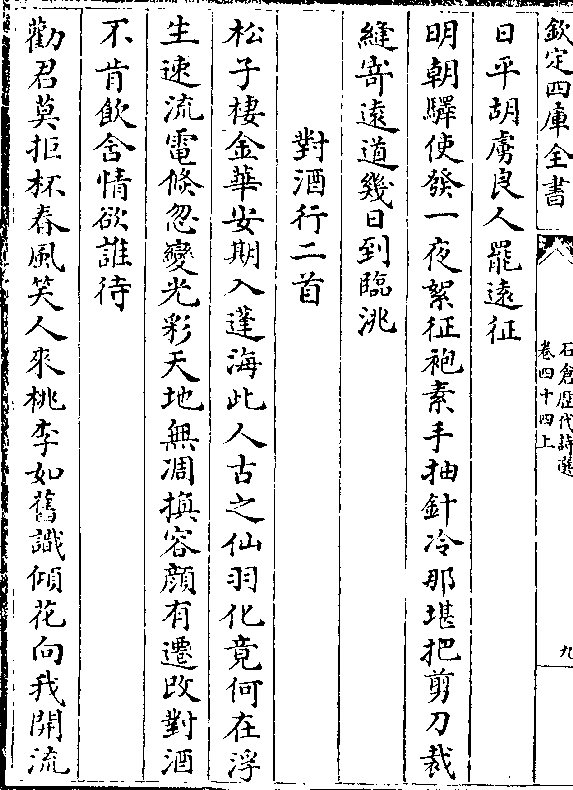 欽定四庫全書
石倉歷代詩選
卷四十四上
九
日平胡虜良人罷遠征
明朝驛使發一夜絮征袍素手抽針冷那堪把剪刀裁
縫寄遠道幾日到臨洮
對酒行二首
松子棲金華安期入蓬海此人古之仙羽化竟何在浮
生速流電倐忽變光彩天地無凋換容顔有遷改對酒
不肯飲含情欲誰待
勸君莫拒杯春風笑人來桃李如舊識傾花向我開流